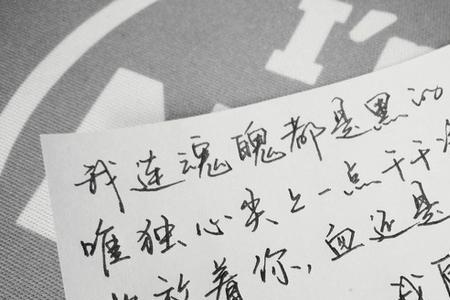 我连魂魄都是黑的
唯独心尖上一点干干
放着你,血还是
我